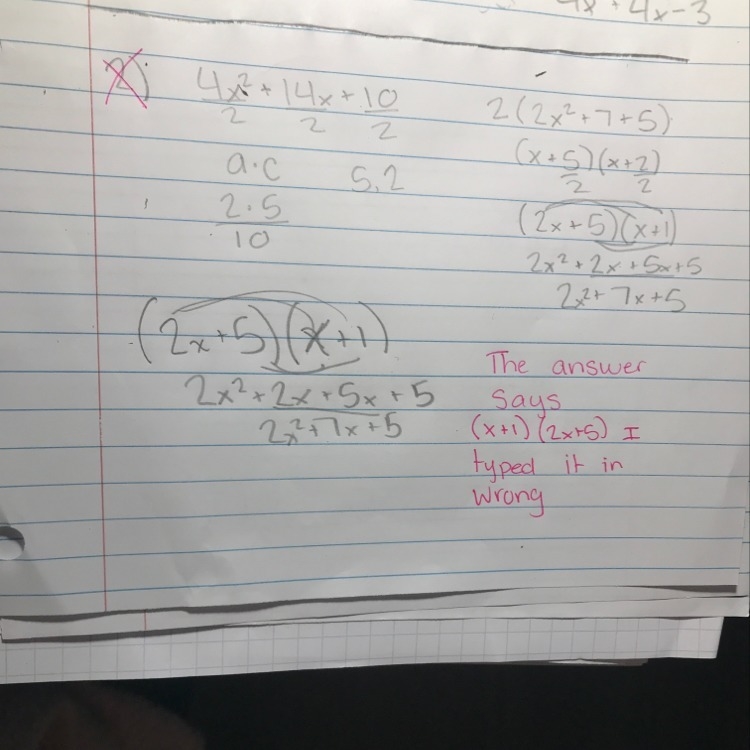 4x + 4x - 3
2)
4x² + 14x + 10
2 2 2
a·c 5,2
2·5
10
(2x+5)(x+1)
2x²+2x+5x+5
2x²+7x+5
2(2x²+7+5)
(x+5)(x+2)
2 2
(2x+5)(x+1)
2x²+2x+5x+5
2x²+7x+5
The answer
says
(x+1)(2x+5) I
typed it in
wrong